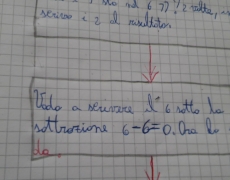 sta nel 6 ?? ! 2 volte, 
scrivo i 2 il risultato.
Vado a scrivere l' 6 sotto la
sottrazione 6-6=0. Ora ho
da.